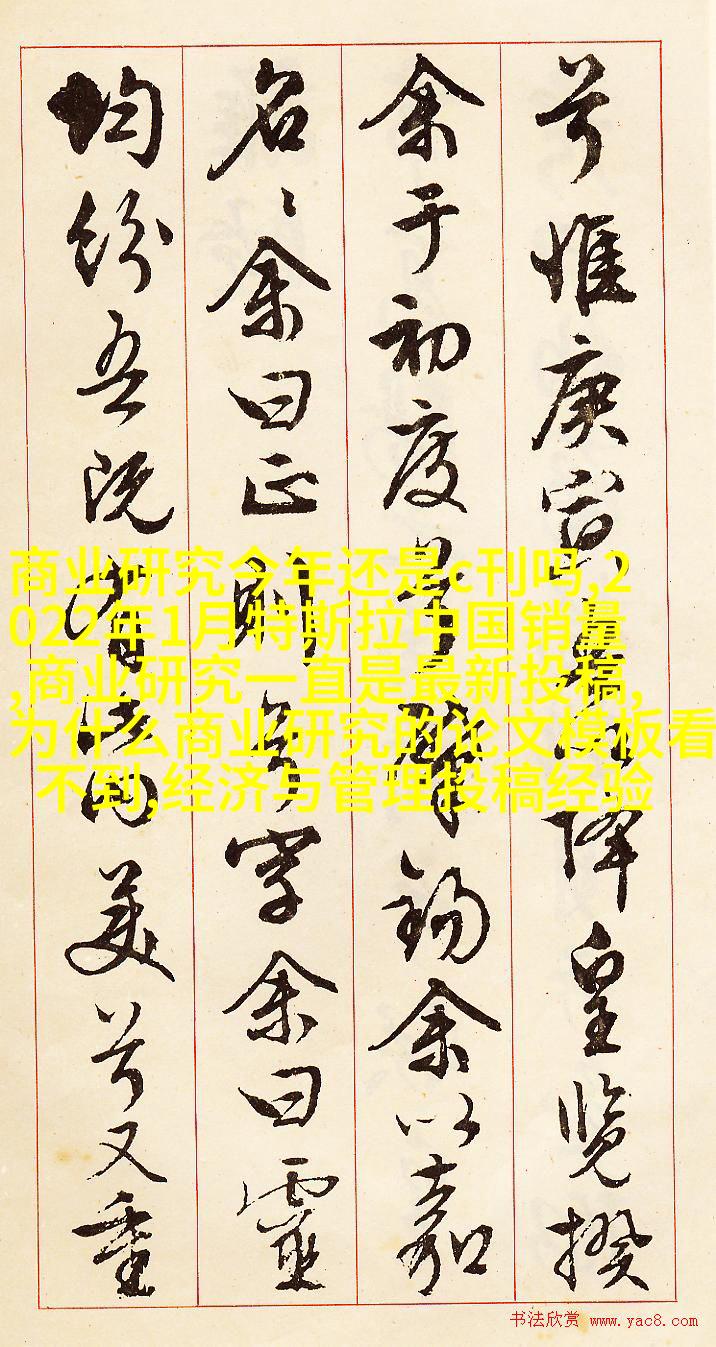 兮惟庚寅吾以降皇覽揆
余于初度兮肇錫余以嘉
名〻余曰正則兮字余曰靈
均紛吾既有此内美兮又重
商业研究今年还是c刊吗,2
022年1月特斯拉中国销量
,商业研究一直是最新投稿,
为什么商业研究的论文模板看
不到,经济与管理投稿经验
书法欣赏 www.yac8.com